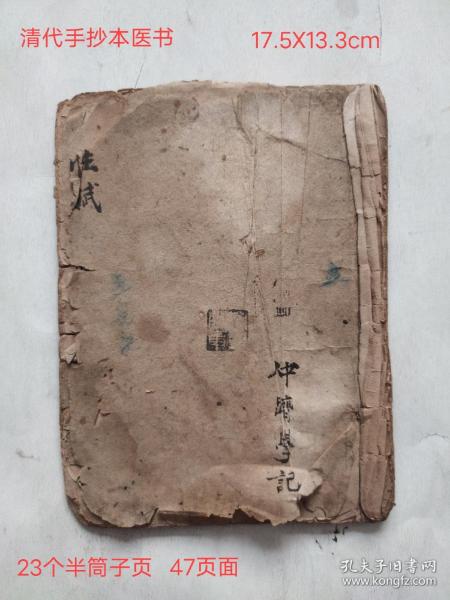 清代手抄本医书 17.5X13.3cm
性賦
仲賔學記
23个半筒子页 47页面
孔夫子旧书网
www.kongfz.com